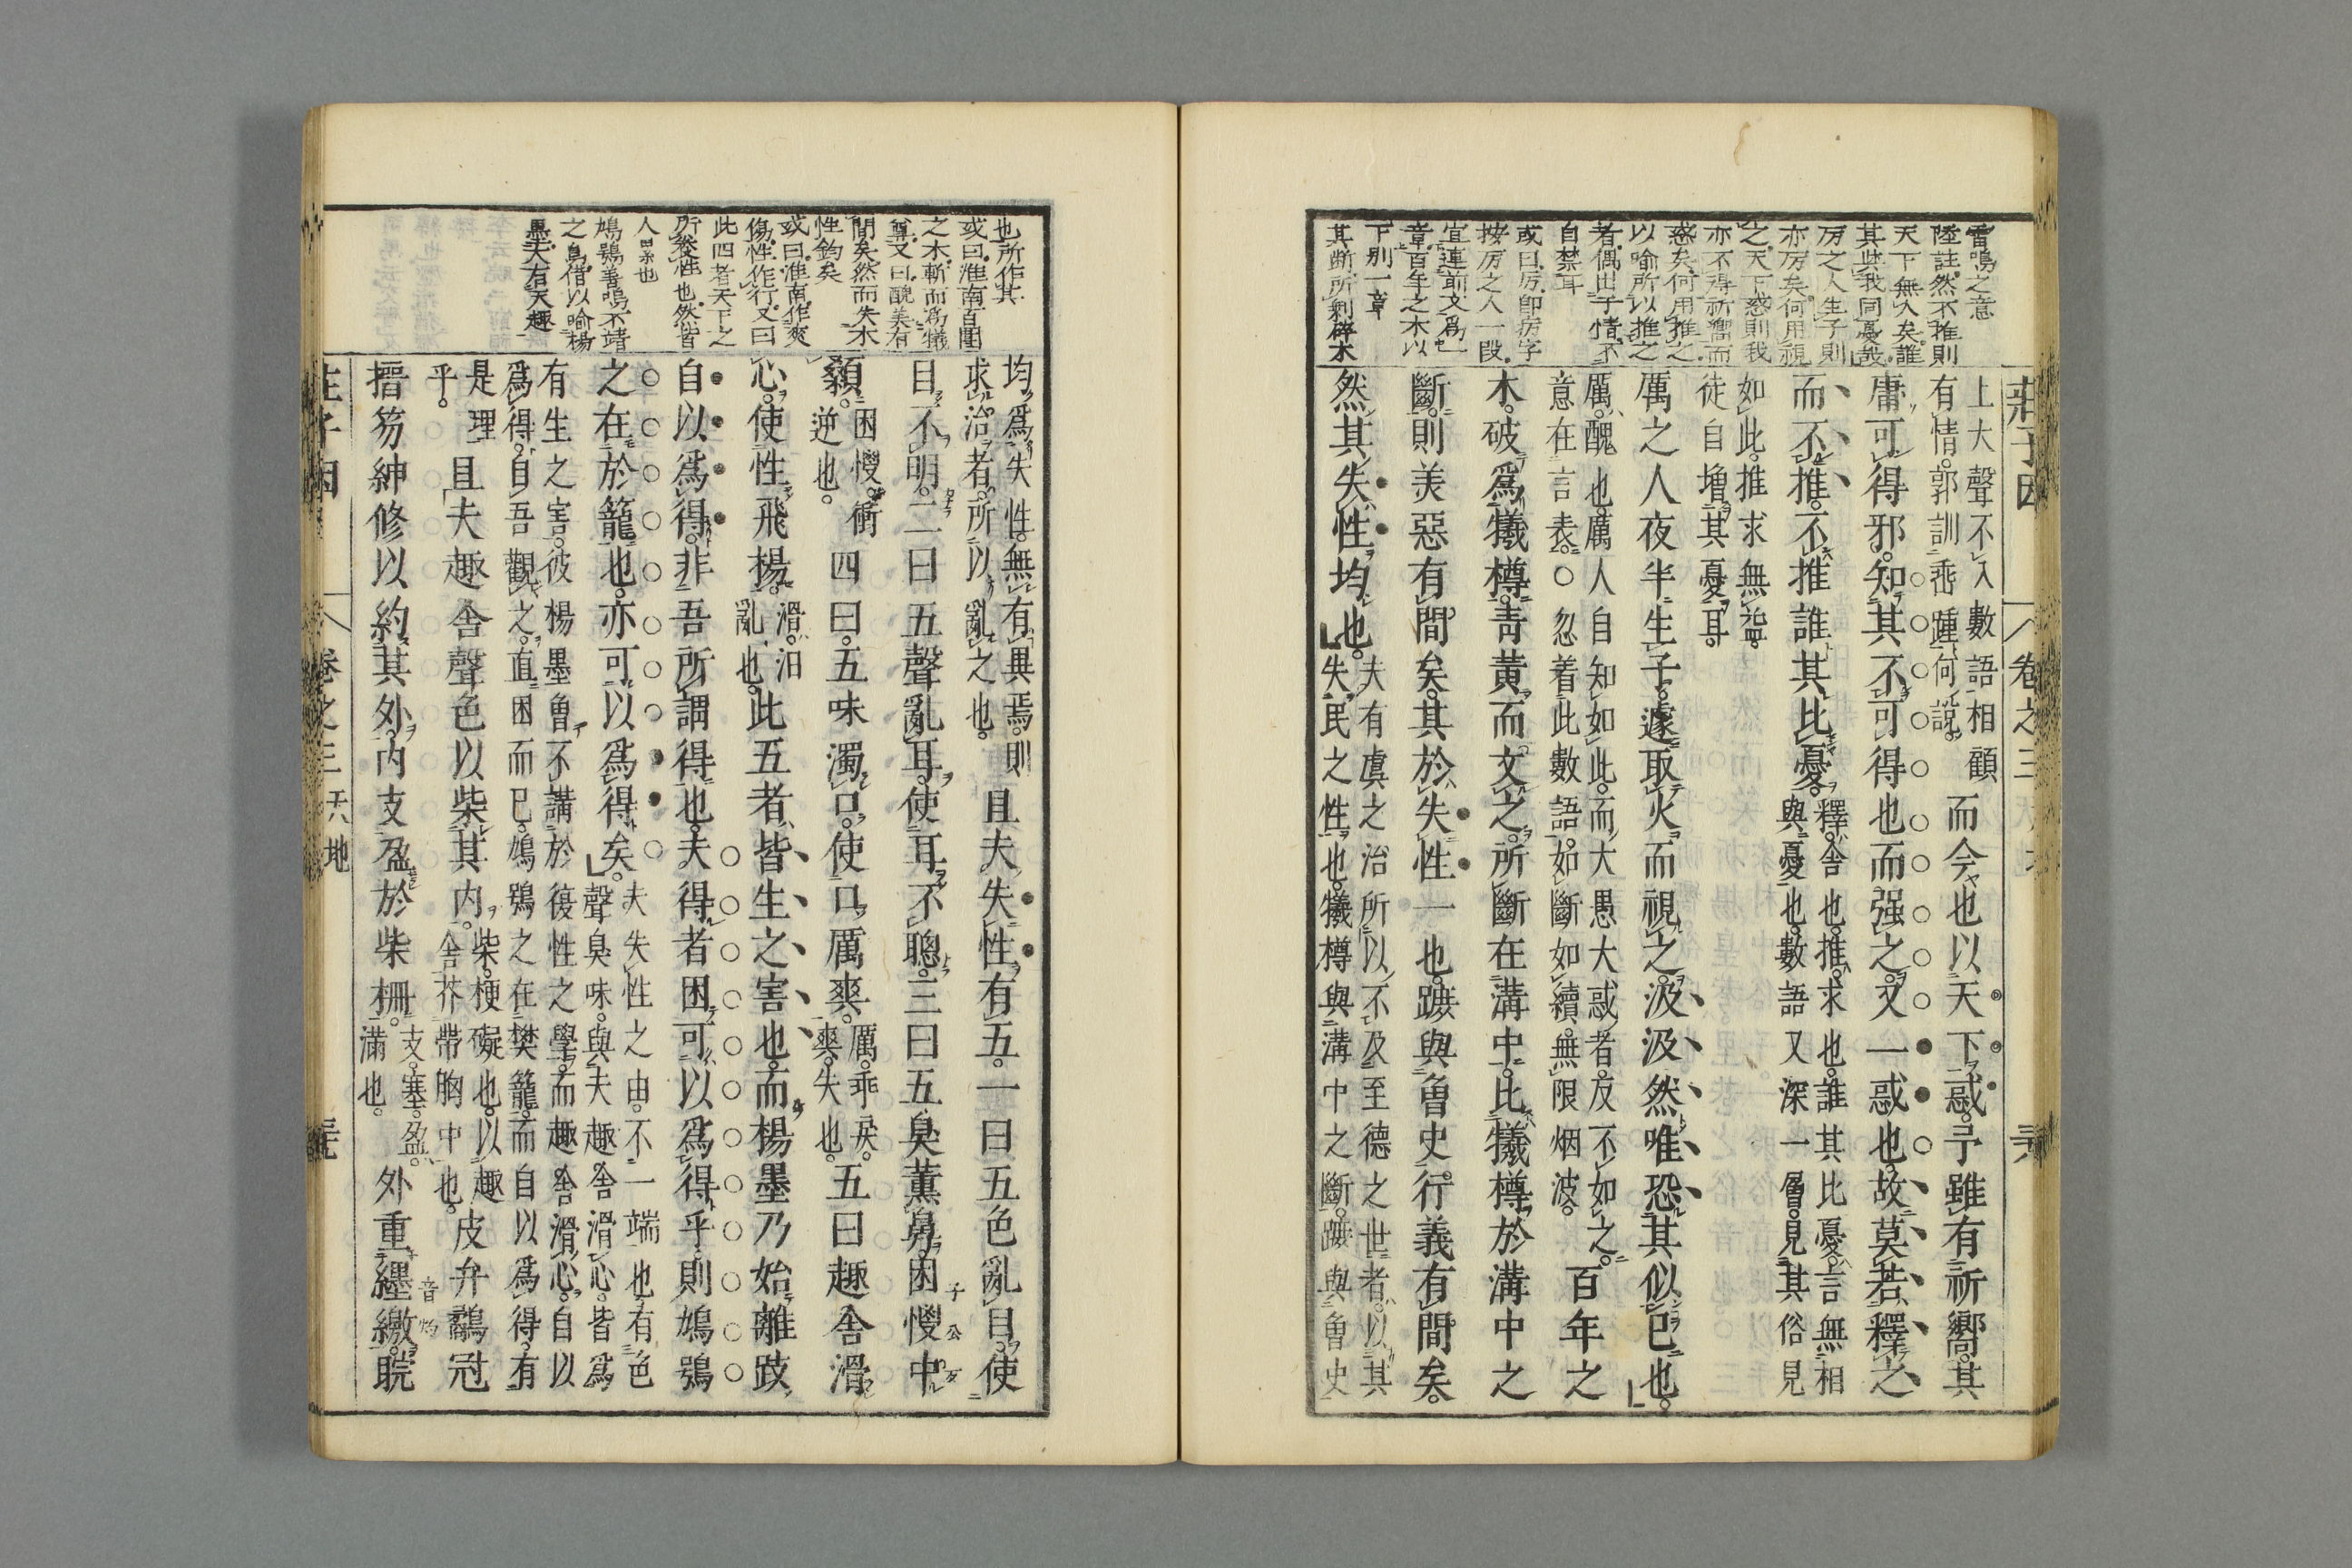 莊子因
卷之三
雷鳴之意
陸註然不推則
天下無人矣誰
其與我同憂哉
厉之人生子則
亦厉矣何用視
之天下惑則我
亦不得祈嚮而
惑矣何用推之
以喻所以推之
者偶出于情不
自禁耳
或曰厉即疠字
按厉之人一段
宜連前文爲一
章百年之木以
下別一章
其斷所剩碎木
上大聲不入數語相顧
有情郭訓垂踵何說
而今也以天下惑予雖有祈嚮其
庸可得邪知其不可得也而强之又一惑也故莫若釋之
而不推不推誰其比憂
釋舍也推求也誰其比憂言無相
與憂也數語又深一層見其俗見
如此推求無益
徒自增其憂耳
厲之人夜半生子遽取火而視之汲汲然唯恐其似已也
厲醜也厲人自知如此而大愚大惑者反不如之
意在言表○忽着此數語如斷如續無限烟波
百年之
木破爲犧樽青黃而文之所斷在溝中比犧樽於溝中之
斷則美惡有間矣其於失性一也蹠與曾史行義有間矣
然其失性均也
夫有虞之治所以不及至德之世者以其
失民之性也犧樽與溝中之斷蹠與曾史
也所作其
或曰淮南百圍
之木斬而爲犧
尊又曰醜美有
間矣然而失木
性鈞矣
或曰淮南作爽
傷性作行又曰
此四者天下之
所養性也然皆
人累也
鳩鴞善鳴不靖
之鳥借以喻楊
墨大有天趣
均爲失性無有異焉則
求治者所以亂之也
且夫失性有五一曰五色亂目使
目不明二曰五聲亂耳使耳不聰三曰五臭薰鼻困惾中
顙
困惾衝
逆也
四曰五味濁口使口厲爽
厲乖戾
爽失也
五曰趣舍滑
心使性飛揚
滑汩
亂也
此五者皆生之害也而楊墨乃始離跂
自以爲得非吾所謂得也夫得者困可以爲得乎則鳩鴞
之在於籠也亦可以爲得矣
夫失性之由不一端也有色
聲臭味與夫趣舍滑心皆爲
有生之害彼楊墨曾不講於復性之學而趣舍滑心自以
爲得自吾觀之直困而已鳩鴞之在樊籠而自以爲得有
是理
乎
且夫趣舍聲色以柴其內
柴梗礙也以趣
舍芥帶胸中也
皮弁鷸冠
搢笏紳修以約其外內支盈於柴柵
支塞盈
滿也
外重纆繳睆
音灼
卷之三
天地